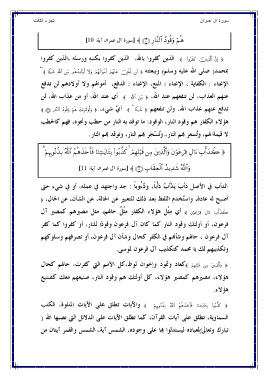 سورة آل عمران الجزء الثالث
هُمْ وَقُودُ النَّارِ ﴿١٠﴾ [سورة آل عمران، آية: 10]
﴿ إِنَّ الَّذِينَ كَفَرُوا ﴾ الذين كفروا بالله، الذين كفروا بكتبه ورسله، الذين كفروا
بمحمد صلى الله عليه وسلم وبعثته
الإغناء: الكفاية، الإغناء: المنع، الإغناء: الدفع، أموالهم ولا أولادهم لن تدفع
عنهم العذاب، لن تنفعهم عند الله، أي عند الله، أو من عذاب الله، لن
تدفع عنهم عذاب الله، ولن تنفعهم ﴿ شَيْئًا ﴾ أيّ شيء،
هؤلاء الكفار هم وقود النار، الوقود: ما توقد به النار من حطب ونحوه، فهم كالحطب
لا قيمة لهم، وتُسعر بهم النار، وتوقد بهم النار.
﴿ كَدَأْبِ آلِ فِرْعَوْنَ وَالَّذِينَ مِن قَبْلِهِمْ كَذَّبُوا بِآيَاتِنَا فَأَخَذَهُمُ اللَّهُ بِذُنُوبِهِمْ
وَاللَّهُ شَدِيدُ الْعِقَابِ ﴿١١﴾ [سورة آل عمران، آية: 11]
الدأب في الأصل دَأَبَ يَدْأَبُ دَأْبًا، ودُؤُوبًا: جد واجتهد في عمله، أو في شيء حتى
أصبح له عادة، واستخدم اللفظ بعد ذلك للتعبير عن العادة، عن الشأن، عن الحال،
أي مثل هؤلاء الكفار مثل حالهم، مثل مصيرهم كمصير آل
فرعون، أو أولئك وقود النار كما كان آل فرعون وقودًا للنار، أو كفروا كما كفر
آل فرعون، حالهم وشأنهم في الكفر كحال وشأن آل فرعون، أو تصرفهم وسلوكهم
وتكذيبهم لك يا محمد كتكذيب آل فرعون لموسى.
﴿ وَالَّذِينَ مِن قَبْلِهِمْ ﴾ كعاد وثمود وإخوان لوط، كل الأمم التي كفرت، حالهم كحال
هؤلاء، مصيرهم كمصير هؤلاء، كل أولئك هم وقود النار، صنيعهم معك كصنيع
هؤلاء.
﴿ كَذَّبُوا بِآيَاتِنَا فَأَخَذَهُمُ اللَّهُ بِذُنُوبِهِمْ ﴾ والآيات تطلق على الآيات المتلوة، الكتب
السماوية، تطلق على آيات القرآن، كما تطلق الآيات على الدلائل التي نصبها الله
تبارك وتعالى لعباده ليستدلوا بها على وجوده، الشمس آية، الشمس والقمر آيتان من